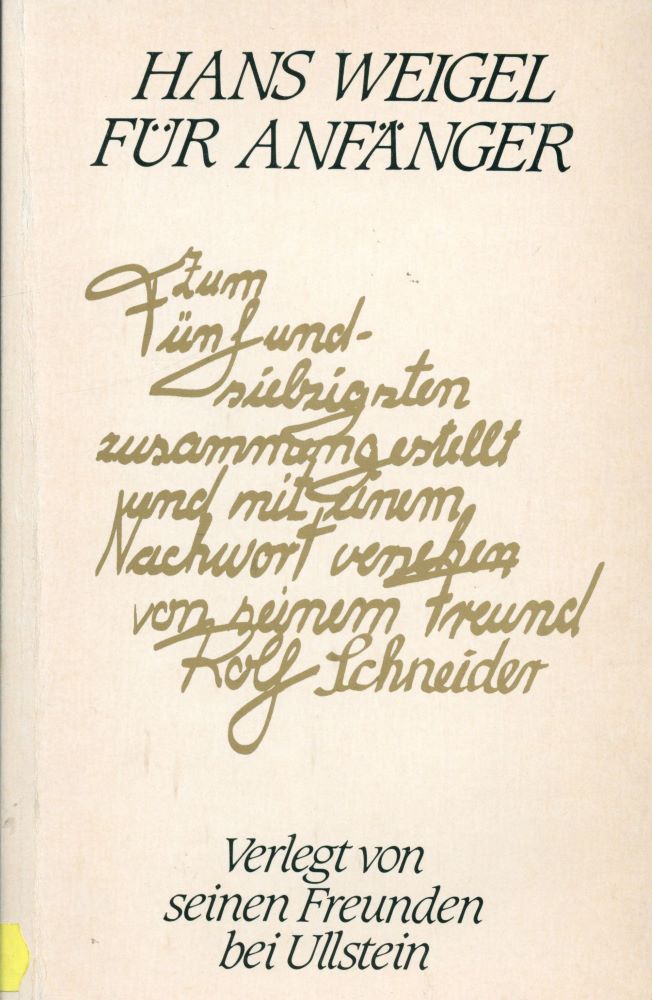 HANS WEIGEL
FÜR ANFÄNGER
Zum
Fünfund-
siebzigsten
zusammengestellt
und mit einem
Nachwort versehen
von seinem Freund
Rolf Schneider
Verlegt von
seinen Freunden
bei Ullstein